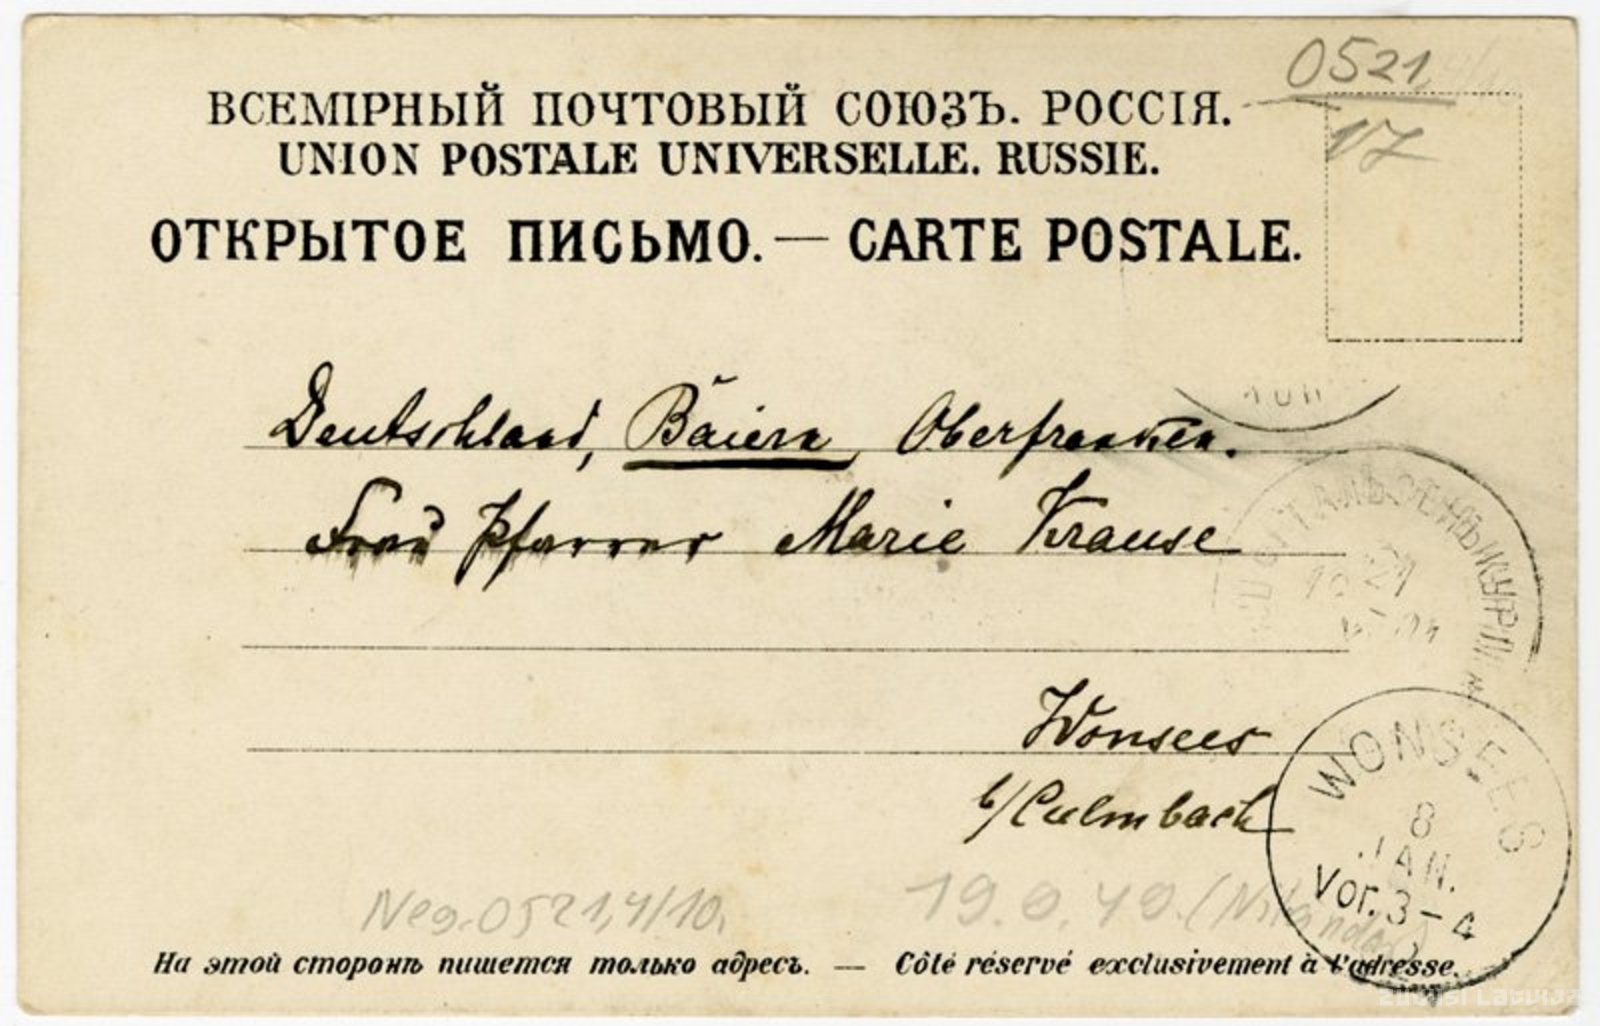 0521
17
ВСЕМІРНЫЙ ПОЧТОВЫЙ СОЮЗЪ. РОССІЯ.
UNION POSTALE UNIVERSELLE. RUSSIE.
ОТКРЫТОЕ ПИСЬМО. — CARTE POSTALE.
Deutschland, Baiern, Oberfranken.
Frau Pfarrer Marie Krause
Wonsees
b/Culmbach
WONSEES
8
JAN.
Vor. 3-4
Neg. 0521,4/10.
На этой сторонѣ пишется только адресъ. — Côté réservé exclusivement à l'adresse.
zudusi Latvija